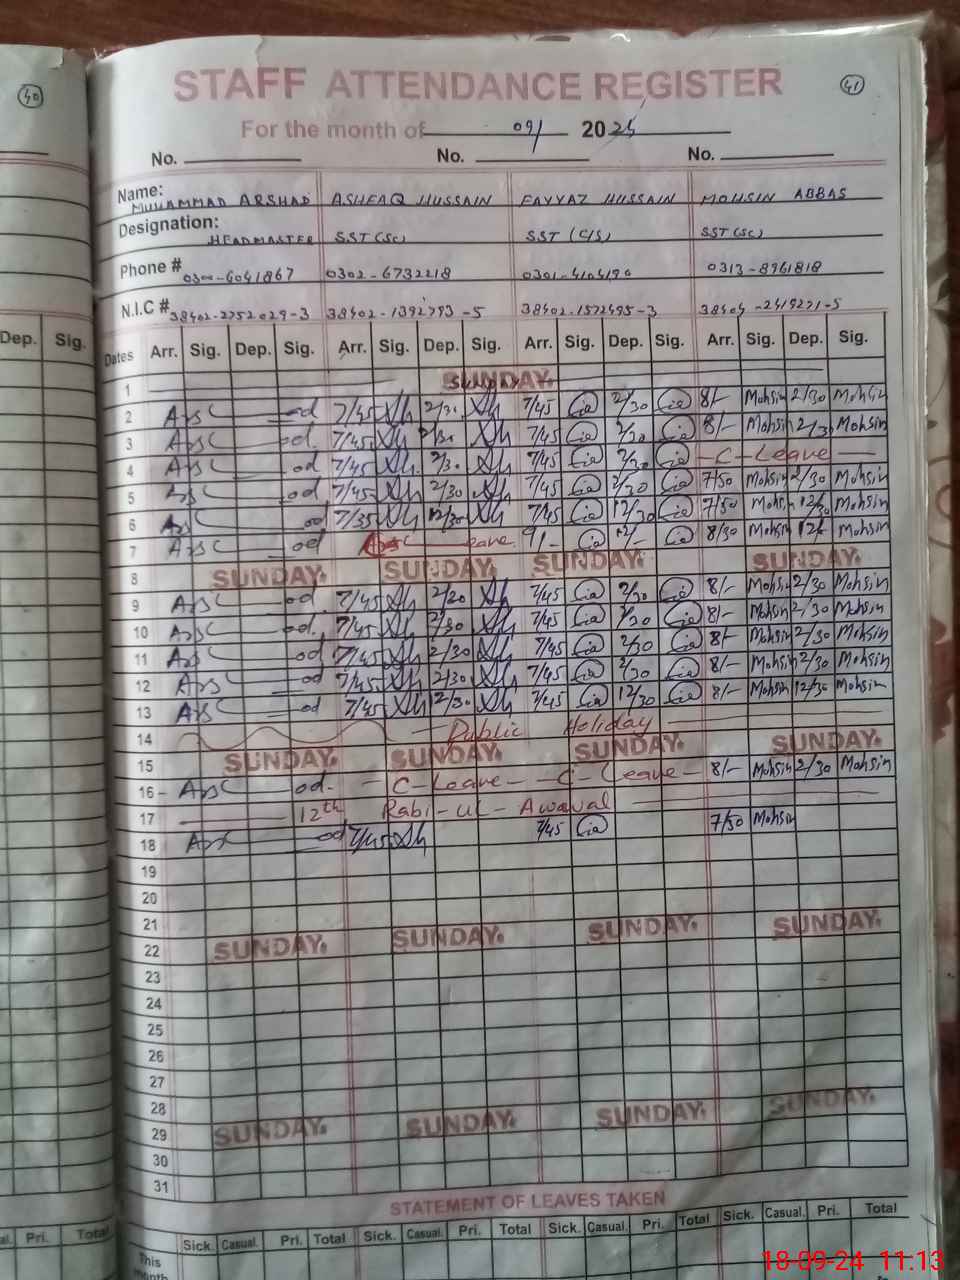 40
STAFF ATTENDANCE REGISTER 41
For the month of 09/ 2024
No. No. No.
Name: MUHAMMAD ARSHAD ASHFAQ HUSSAIN FAYYAZ HUSSAIN MOHSIN ABBAS
Designation: HEADMASTER SST(SC) SST (C/S) SST(SC)
Phone # 0300-6041867 0302-6732218 0301-4104190 0313-8961818
N.I.C # 38402-2752029-3 38402-1392793-5 38402-1572495-3 38404-2419271-5
Dep. Sig. Dates Arr. Sig. Dep. Sig. Arr. Sig. Dep. Sig. Arr. Sig. Dep. Sig. Arr. Sig. Dep. Sig.
1 SUNDAY.
2 od 7/45 2/30 7/45 2/30 8/- Mohsin 2/30 Mohsin
3 od. 7/45 2/30 7/45 2/30 8/- Mohsin 2/30 Mohsin
4 od 7/45 2/30 7/45 2/30 - C - Leave -
5 od 7/45 2/30 7/45 2/30 7/50 Mohsin 2/30 Mohsin
6 od 7/35 12/30 7/45 12/30 7/50 Mohsin 12/30 Mohsin
7 od leave. 9/- 12/- 8/30 Mohsin 12/- Mohsin
8 SUNDAY. SUNDAY. SUNDAY. SUNDAY.
9 od 7/45 2/20 7/45 2/30 8/- Mohsin 2/30 Mohsin
10 od. 7/45 2/30 7/45 2/30 8/- Mohsin 2/30 Mohsin
11 od 7/45 2/30 7/45 2/30 8/- Mohsin 2/30 Mohsin
12 od 7/45 2/30 7/45 2/30 8/- Mohsin 2/30 Mohsin
13 od 7/45 2/30 7/45 12/30 8/- Mohsin 12/30 Mohsin
14 Public Holiday
15 SUNDAY. SUNDAY. SUNDAY. SUNDAY.
16 od. - C - Leave - - C - Leave - 8/- Mohsin 2/30 Mohsin
17 12th Rabi-ul-Awawal
18 od 7/45 7/45 7/50 Mohsin
19
20
21
22 SUNDAY. SUNDAY. SUNDAY. SUNDAY.
23
24
25
26
27
28
29 SUNDAY. SUNDAY. SUNDAY. SUNDAY.
30
31
STATEMENT OF LEAVES TAKEN
Pri. Total Sick. Casual. Pri. Total Sick. Casual. Pri. Total Sick. Casual. Pri. Total Sick. Casual. Pri. Total
This
month
18-09-24 11:13